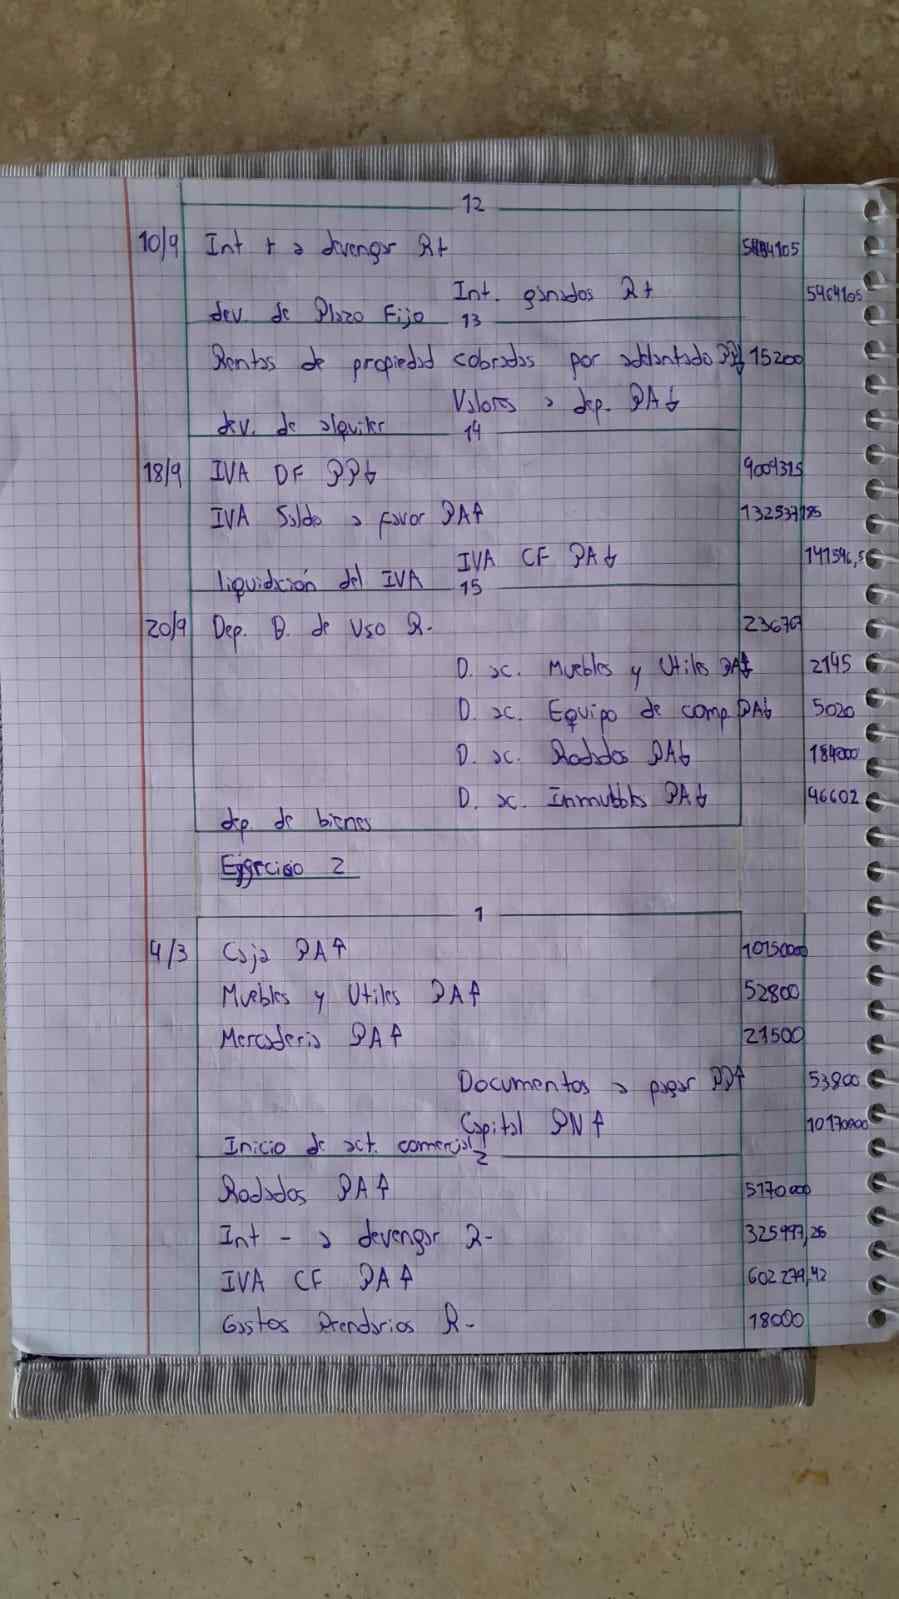 12
10/9 Int + a devengar R+
Int. ganados R+ 5464105
dev. de Plazo Fijo 13
Rentas de propiedad cobradas por adelantado PP↓ 15200
Valores a dep. PA↓
dev. de alquiler 14
18/9 IVA DF PP↓ 9004315
IVA Saldo a favor PA↑
IVA CF PA↓
liquidación del IVA 15
20/9 Dep. B. de Uso R-
D. ac. Muebles y Utiles PA↓ 2145
D. ac. Equipo de comp PA↓ 5020
D. ac. Rodados PA↓ 184000
D. ac. Inmuebles PA↓ 46602
dep. de bienes
Ejercicio 2
1
4/3 Caja PA↑ 10150000
Muebles y Utiles PA↑ 52800
Mercaderia PA↑ 21500
Documentos a pagar PP↑ 53800
Capital PN↑ 10170000
Inicio de act. comercial 2
Rodados PA↑ 5170000
Int - a devengar R-
IVA CF PA↑ 602279,42
Gastos Prendarios R- 18000